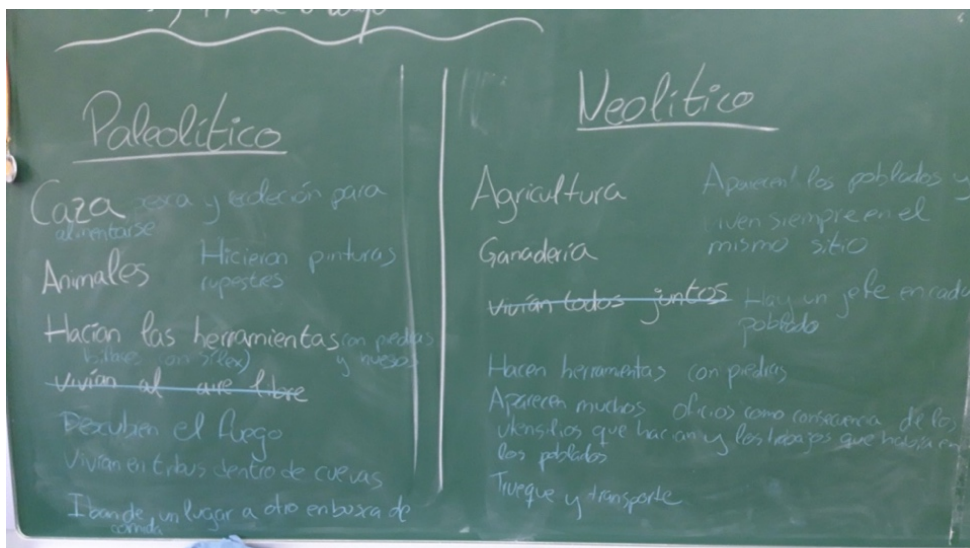 Paleolítico
Caza pesca y recolección para
alimentarse
Animales
Hicieron pinturas
rupestres
Hacían las herramientas con piedras
y huesos
sílex)
vivían al aire libre
Descubren el fuego
Vivían en tribus dentro de cuevas
Iban de un lugar a otro en busca de
comida
Neolítico
Agricultura
Aparecen los poblados y
viven siempre en el
mismo sitio
Ganadería
vivían todos juntos
Hay un jefe en cada
poblado
Hacen herramientas con piedras
Aparecen muchos oficios como consecuencia de los
utensilios que hacían y los trabajos que había en
los poblados
Trueque y transporte